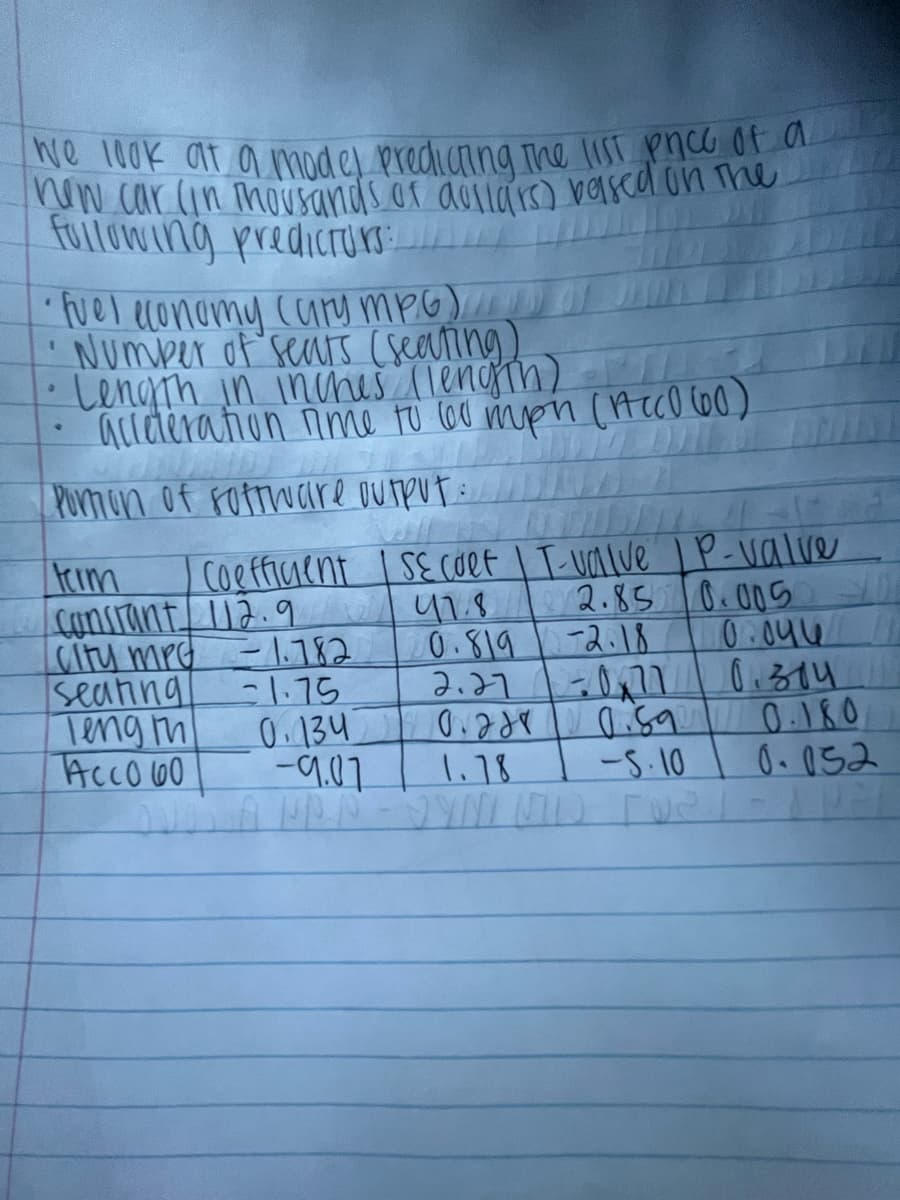 We look at a model predicting the list price of a
new car (in thousands of dollars) based on the
following predictors:
• fuel economy (city mpg)
• Number of seats (seating)
• Length in inches (length)
• acceleration time to 60 mph (Acc060)
Portion of software output:
term | coefficient | SE coef | T-value | P-value
constant 112.9 47.8 2.85 0.005
city mpg -1.782 0.819 -2.18 0.044
seating -1.75 2.27 -0.77
length 0.134 0.59 0.180
Acc060 -9.07 1.78 -5.10 0.052